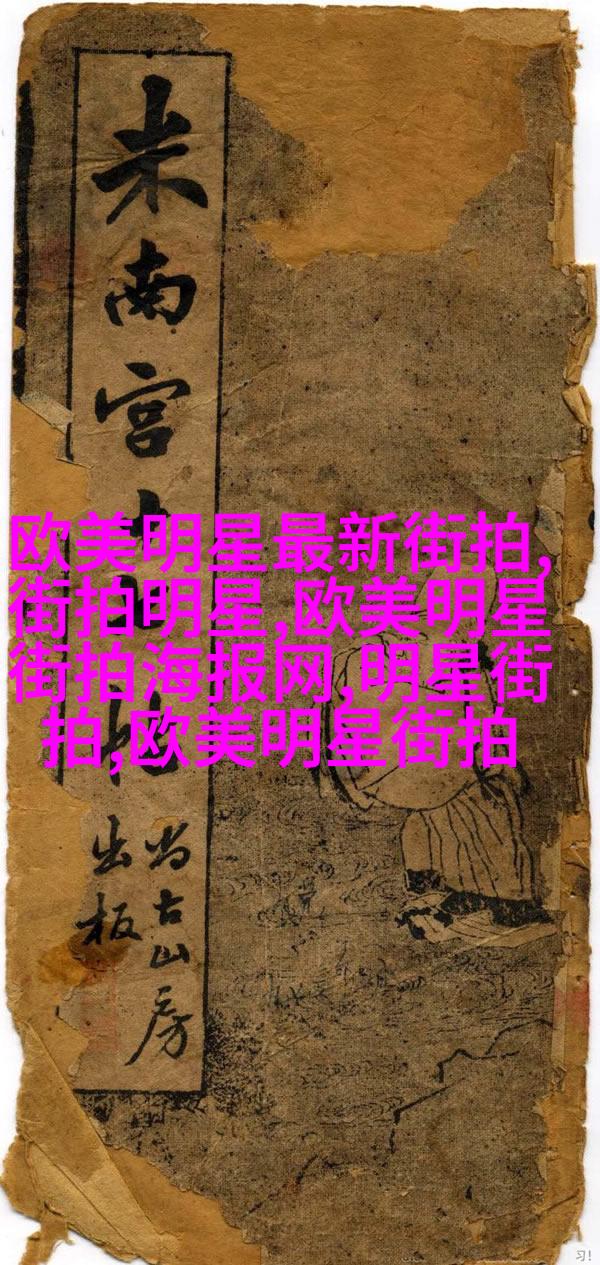 米南宫
尚古山房
出板
欧美明星最新街拍,
街拍明星,欧美明星
街拍海报网,明星街
拍,欧美明星街拍
习!